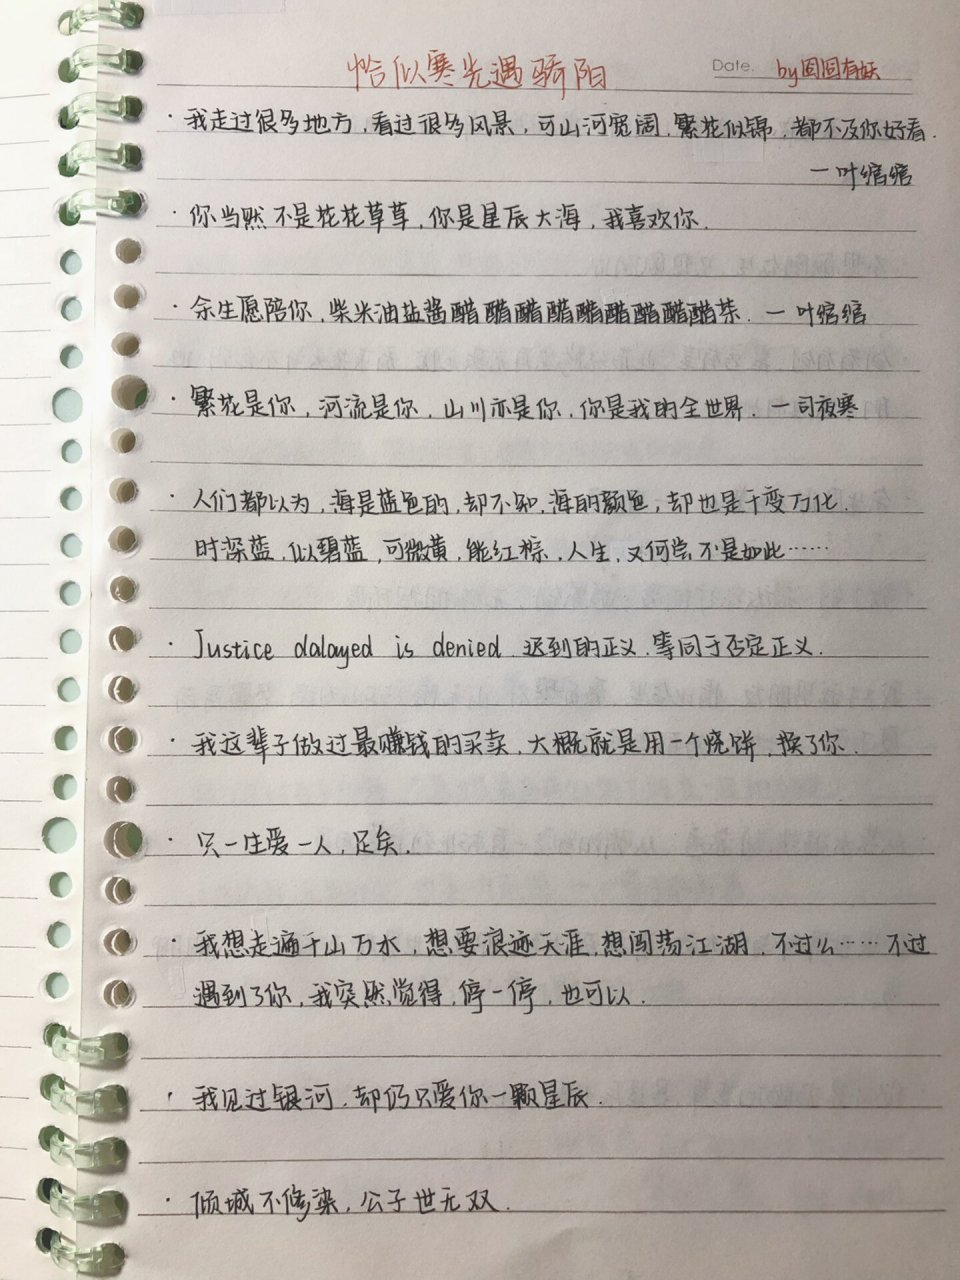 恰似寒光遇骄阳
Date. by囧囧有妖
· 我走过很多地方，看过很多风景，可山河宽阔，繁花似锦，都不及你好看．
一叶绾绾
· 你当然不是花花草草，你是星辰大海，我喜欢你．
· 余生愿陪你，柴米油盐酱醋醋醋醋醋醋醋醋醋茶．一叶绾绾
· 繁花是你，河流是你，山川亦是你，你是我的全世界．一司夜寒
· 人们都以为，海是蓝色的，却不知，海的颜色，却也是千变万化．
时深蓝，似碧蓝，可微黄，能红棕，人生，又何尝不是如此……
· Justice dalayed is denied．迟到的正义．等同于否定正义．
· 我这辈子做过最赚钱的买卖，大概就是用一个烧饼，换了你．
· 只一生爱一人，足矣．
· 我想走遍千山万水，想要浪迹天涯，想闯荡江湖，不过么……不过
遇到了你，我突然觉得，停一停，也可以．
· 我见过银河，却仍只爱你一颗星辰．
· 倾城不修染，公子世无双．